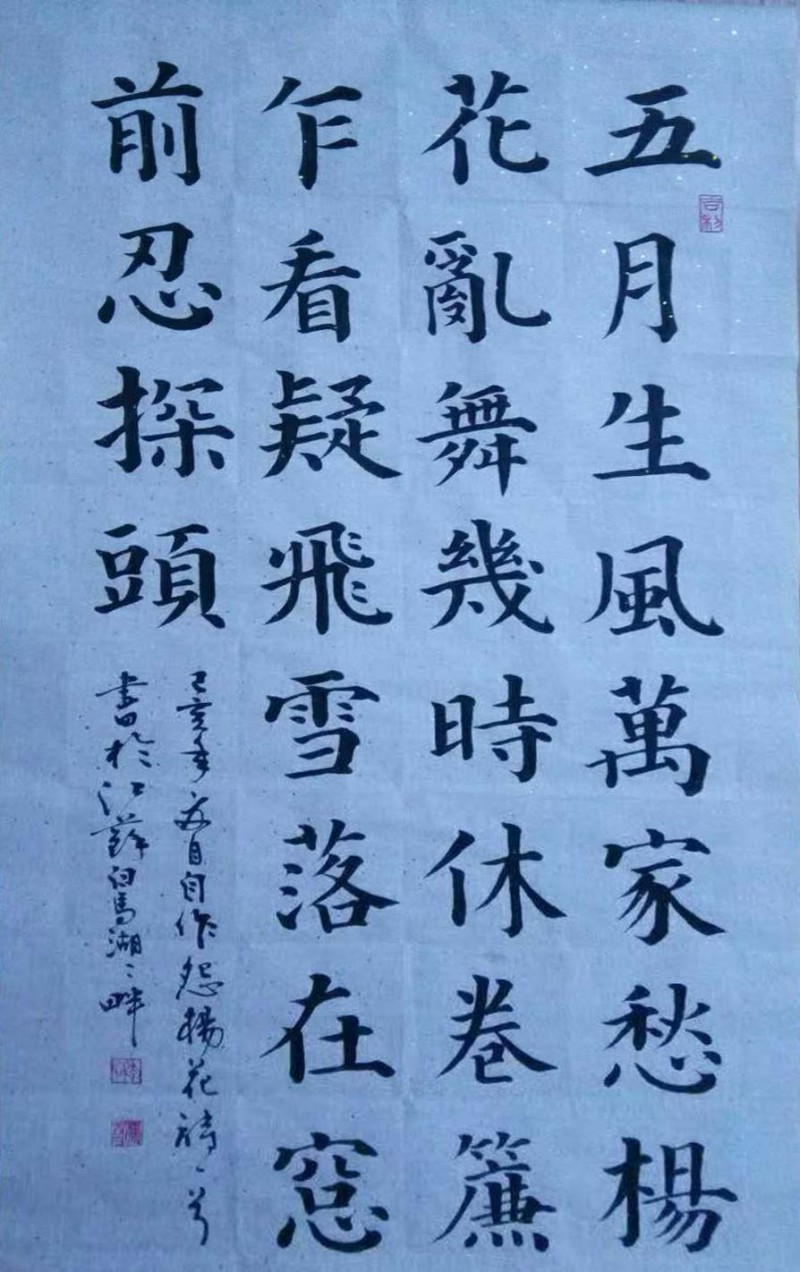 五月生風萬家愁楊
花亂舞幾時休卷簾
乍看疑飛雪落在窓
前忍探頭
己亥年夏自作怨楊花詩一首
書於江蘇白馬湖湖畔